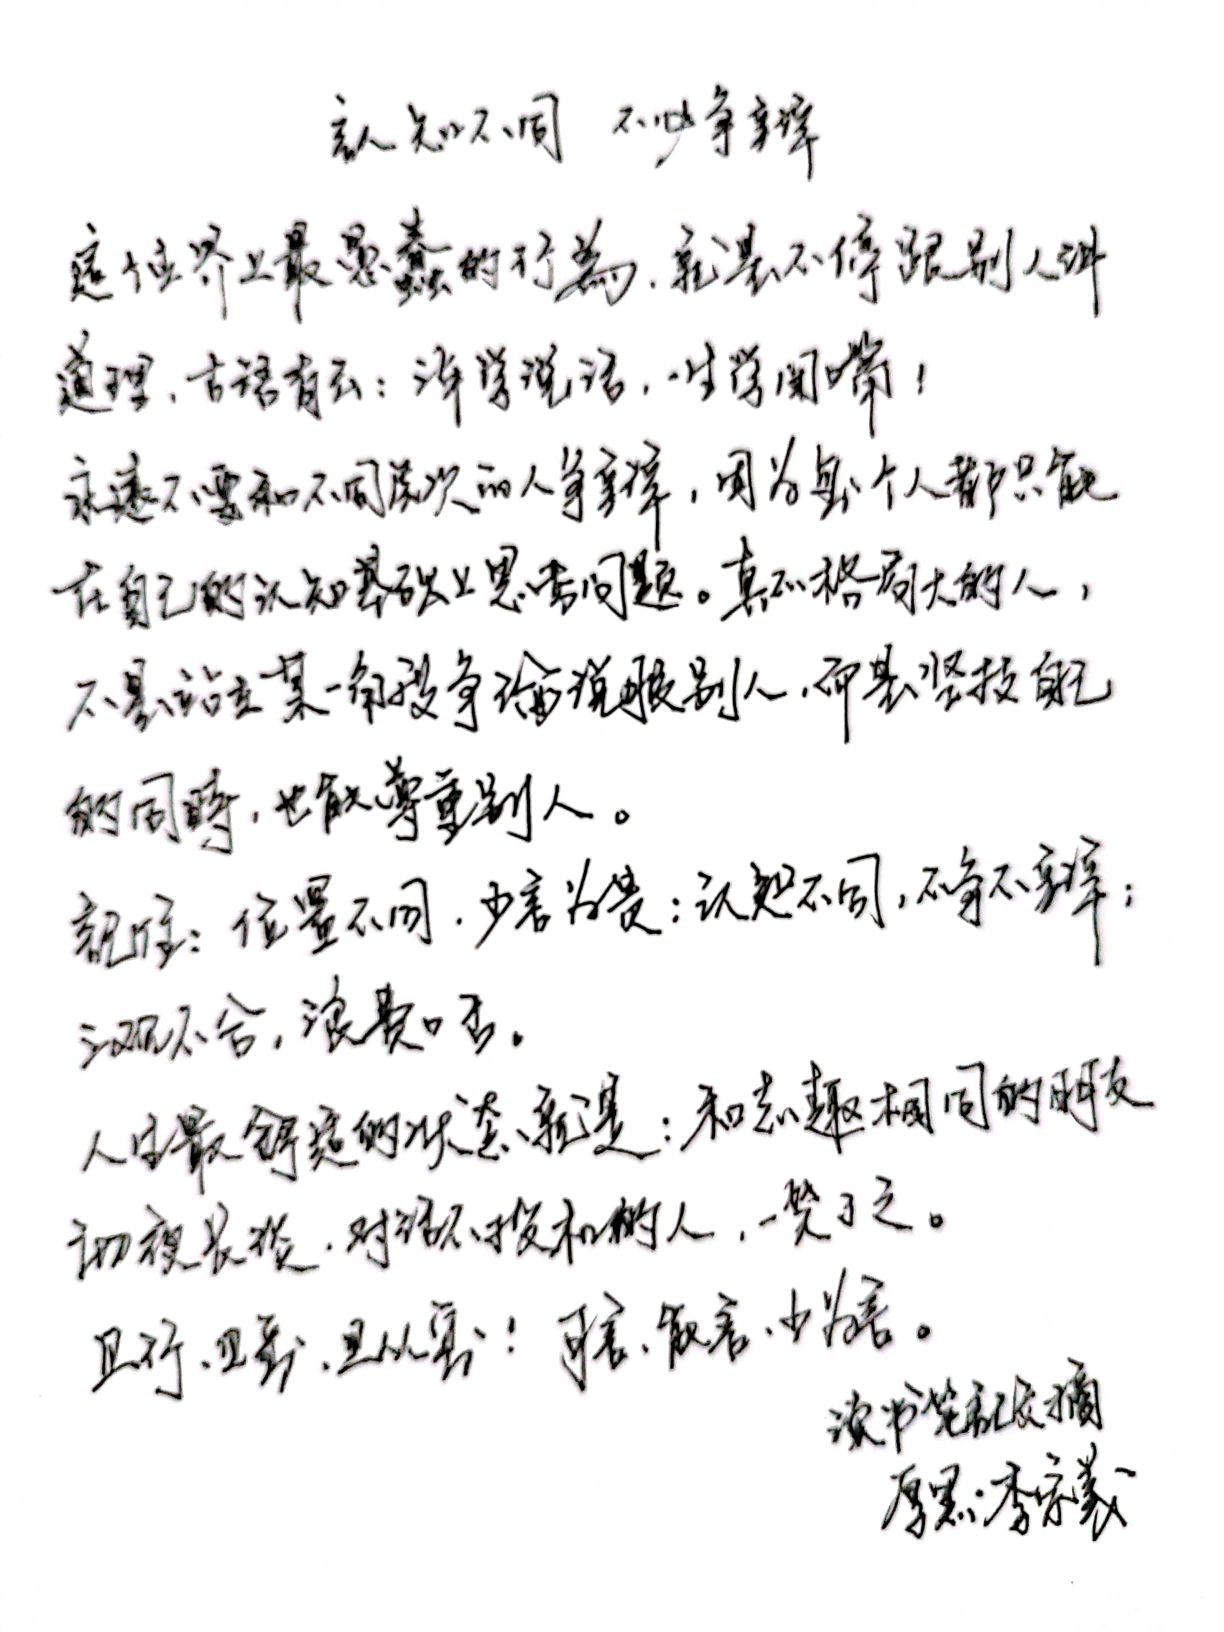 認知不同 不必争辯
這个世界上最愚蠢的行為，就是不停跟别人讲
道理，古语有云：三年学说话，一生学闭嘴！
永遠不要和不同层次的人争辯，因为每个人都只能
在自己的认知基础上思考问题。真正格局大的人，
不是站在某一角段争论说服别人，而是坚持自己
的同時，也能尊重别人。
記住：位置不同，少言为贵；认知不同，不争不辯；
三观不合，浪费口舌。
人生最舒適的状态就是：和志趣相同的朋友
初夜长谈，对话不投机的人，一笑了之。
且行、且勤、且从容！可言、能言、少为言。
读书笔記文摘
厚黑：李宗義